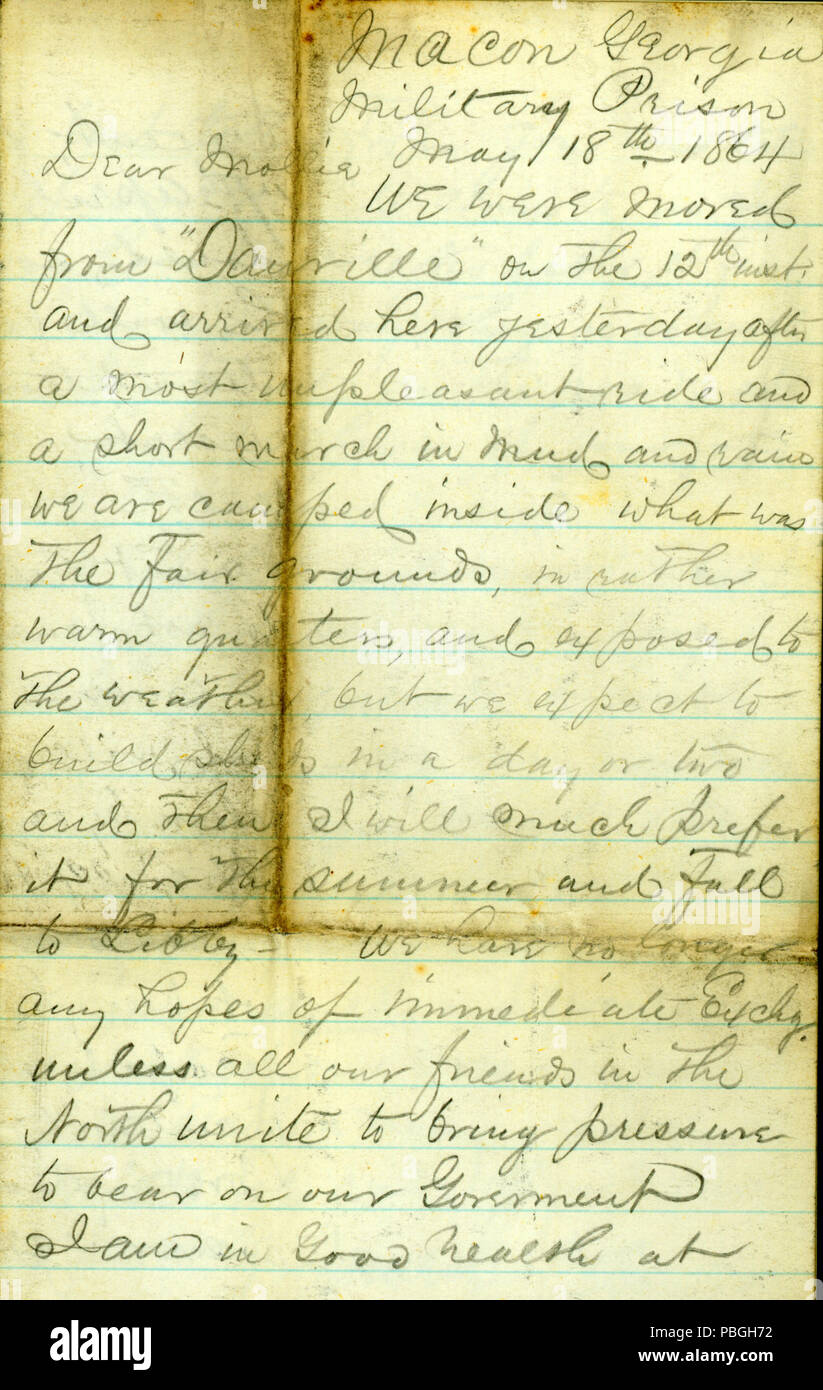 Macon Georgia
Military Prison
May 18th 1864
Dear Mollie
We were moved
from "Danville" on the 12th inst.
and arrived here yesterday after
a most unpleasant ride and
a short march in mud and rain
we are camped inside what was
the Fair grounds, in rather
warm quarters, and exposed to
the weather, but we expect to
build sheds in a day or two
and then I will much prefer
it for the summer and Fall
to Libby - We have no longer
any hopes of immediate Exchg.
unless all our friends in the
North unite to bring pressure
to bear on our Goverment
I am in Good health at
alamy
Image ID: PBGH72
www.alamy.com